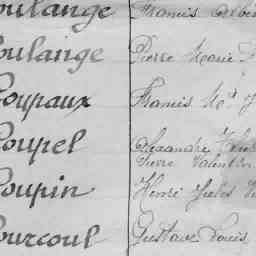 oulange Francis
oulange Pierre Marie
oupaux Francis
oupel Alexandre
Pierre Valentin
oupin Henri Jules
ourcoul Gustave Louis